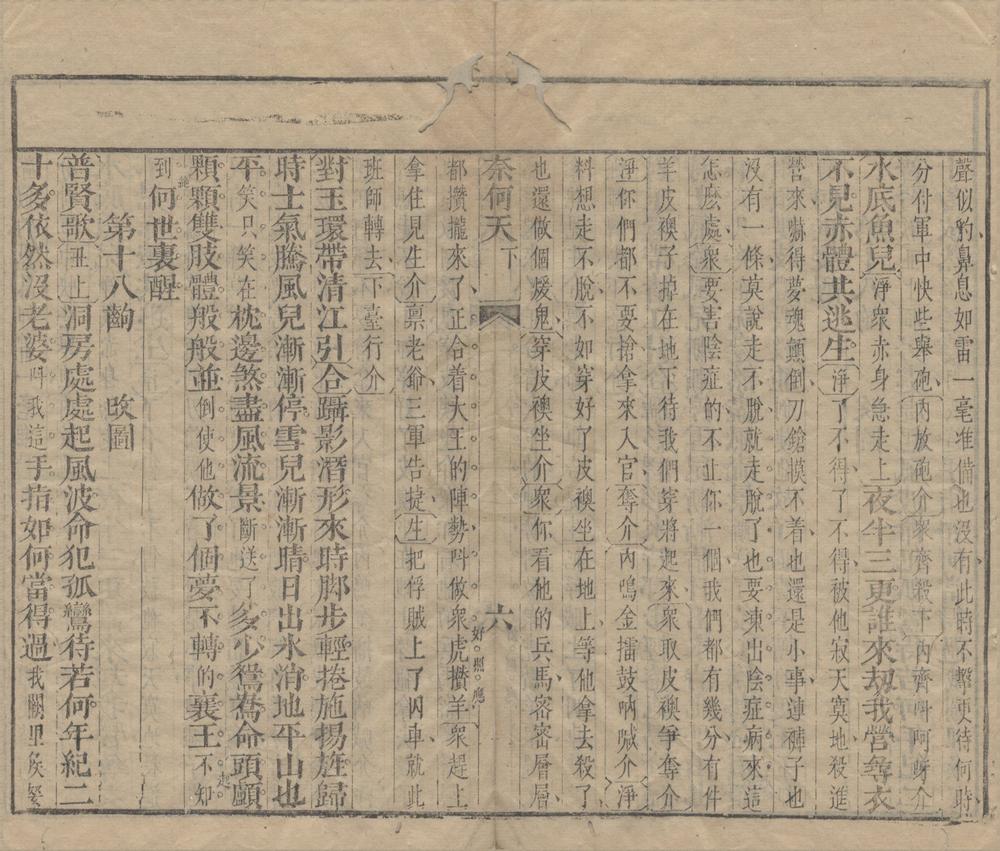 聲似豹鼻息如雷一毫准備也沒有此時不擊更待何時
分付軍中快些舉砲內放砲介衆齊殺下內齊呌呵呀介
水底魚兒淨衆赤身急走上夜半三更誰來刼我營等衣
不見赤體共逃生淨了不得了不得被他寂天寞地殺進
營來嚇得夢魂顛倒刀鎗摸不着也還是小事連褲子也
沒有一條莫說走不脫就走脫了也要凍出陰症病來這
怎麽處衆要害陰症的不止你一個我們都有幾分有件
羊皮襖子掉在地下待我們穿將起來衆取皮襖爭奪介
淨你們都不要搶拿來入官奪介內鳴金擂鼓吶喊介淨
料想走不脫不如穿好了皮襖坐在地上等他拿去殺了
也還做個煖鬼穿皮襖坐介衆你看他的兵馬密密層層
奈何天 下 六
都攢攏來了正合着大王的陣勢呌做衆虎攢羊衆趕上
好照應
拿住見生介禀老爺三軍告捷生把俘賊上了囚車就此
班師轉去下臺行介
對玉環帶淸江引合躡影潛形來時脚步輕捲施揚旌歸
時士氣騰風兒漸漸停雪兒漸漸晴日出氷消地平山也
平笑只笑在枕邊煞盡風流景斷送了多少鴛鴦命頭顱
顆顆雙肢體般般並倒使他做了個夢不轉的襄王不知
到何世裏醒
第十八齣 改圖
普賢歌丑上洞房處處起風波命犯孤鸞待若何年紀二
十多依然沒老婆呌我這手指如何當得過我闕里矦發